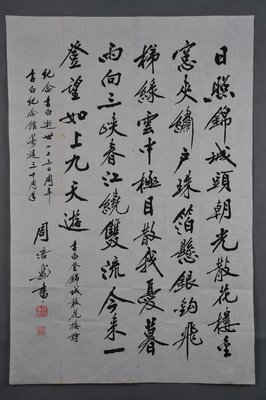 日照錦城頭朝光散花樓金
窓夾繡戶珠箔懸銀鈎飛
梯綠雲中極目散我憂暮
雨向三峡春江繞雙流今來一
登望如上九天遊
李白登錦城散花樓詩
纪念李白逝世一二三〇周年
李白纪念館籌建三十周年
周浩然書